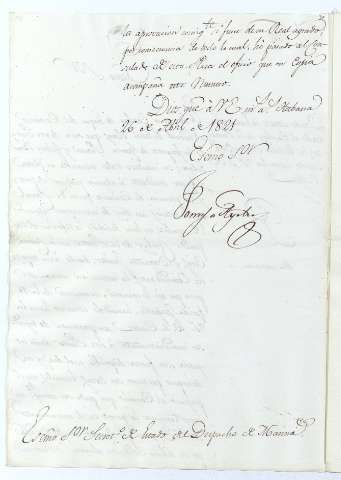 la aprovacion comq.te si fuere de su Real agrado,
por consecuencia de todo lo cual, he pasado al
de esta Plaza el oficio que en Copia
acompaña con Numero
Dios gue à V.E. m.s a.s Habana
26 de Abril de 1821
Exsmo Sor
Exsmo Sor Secret.o de Estado del Despacho de Marina